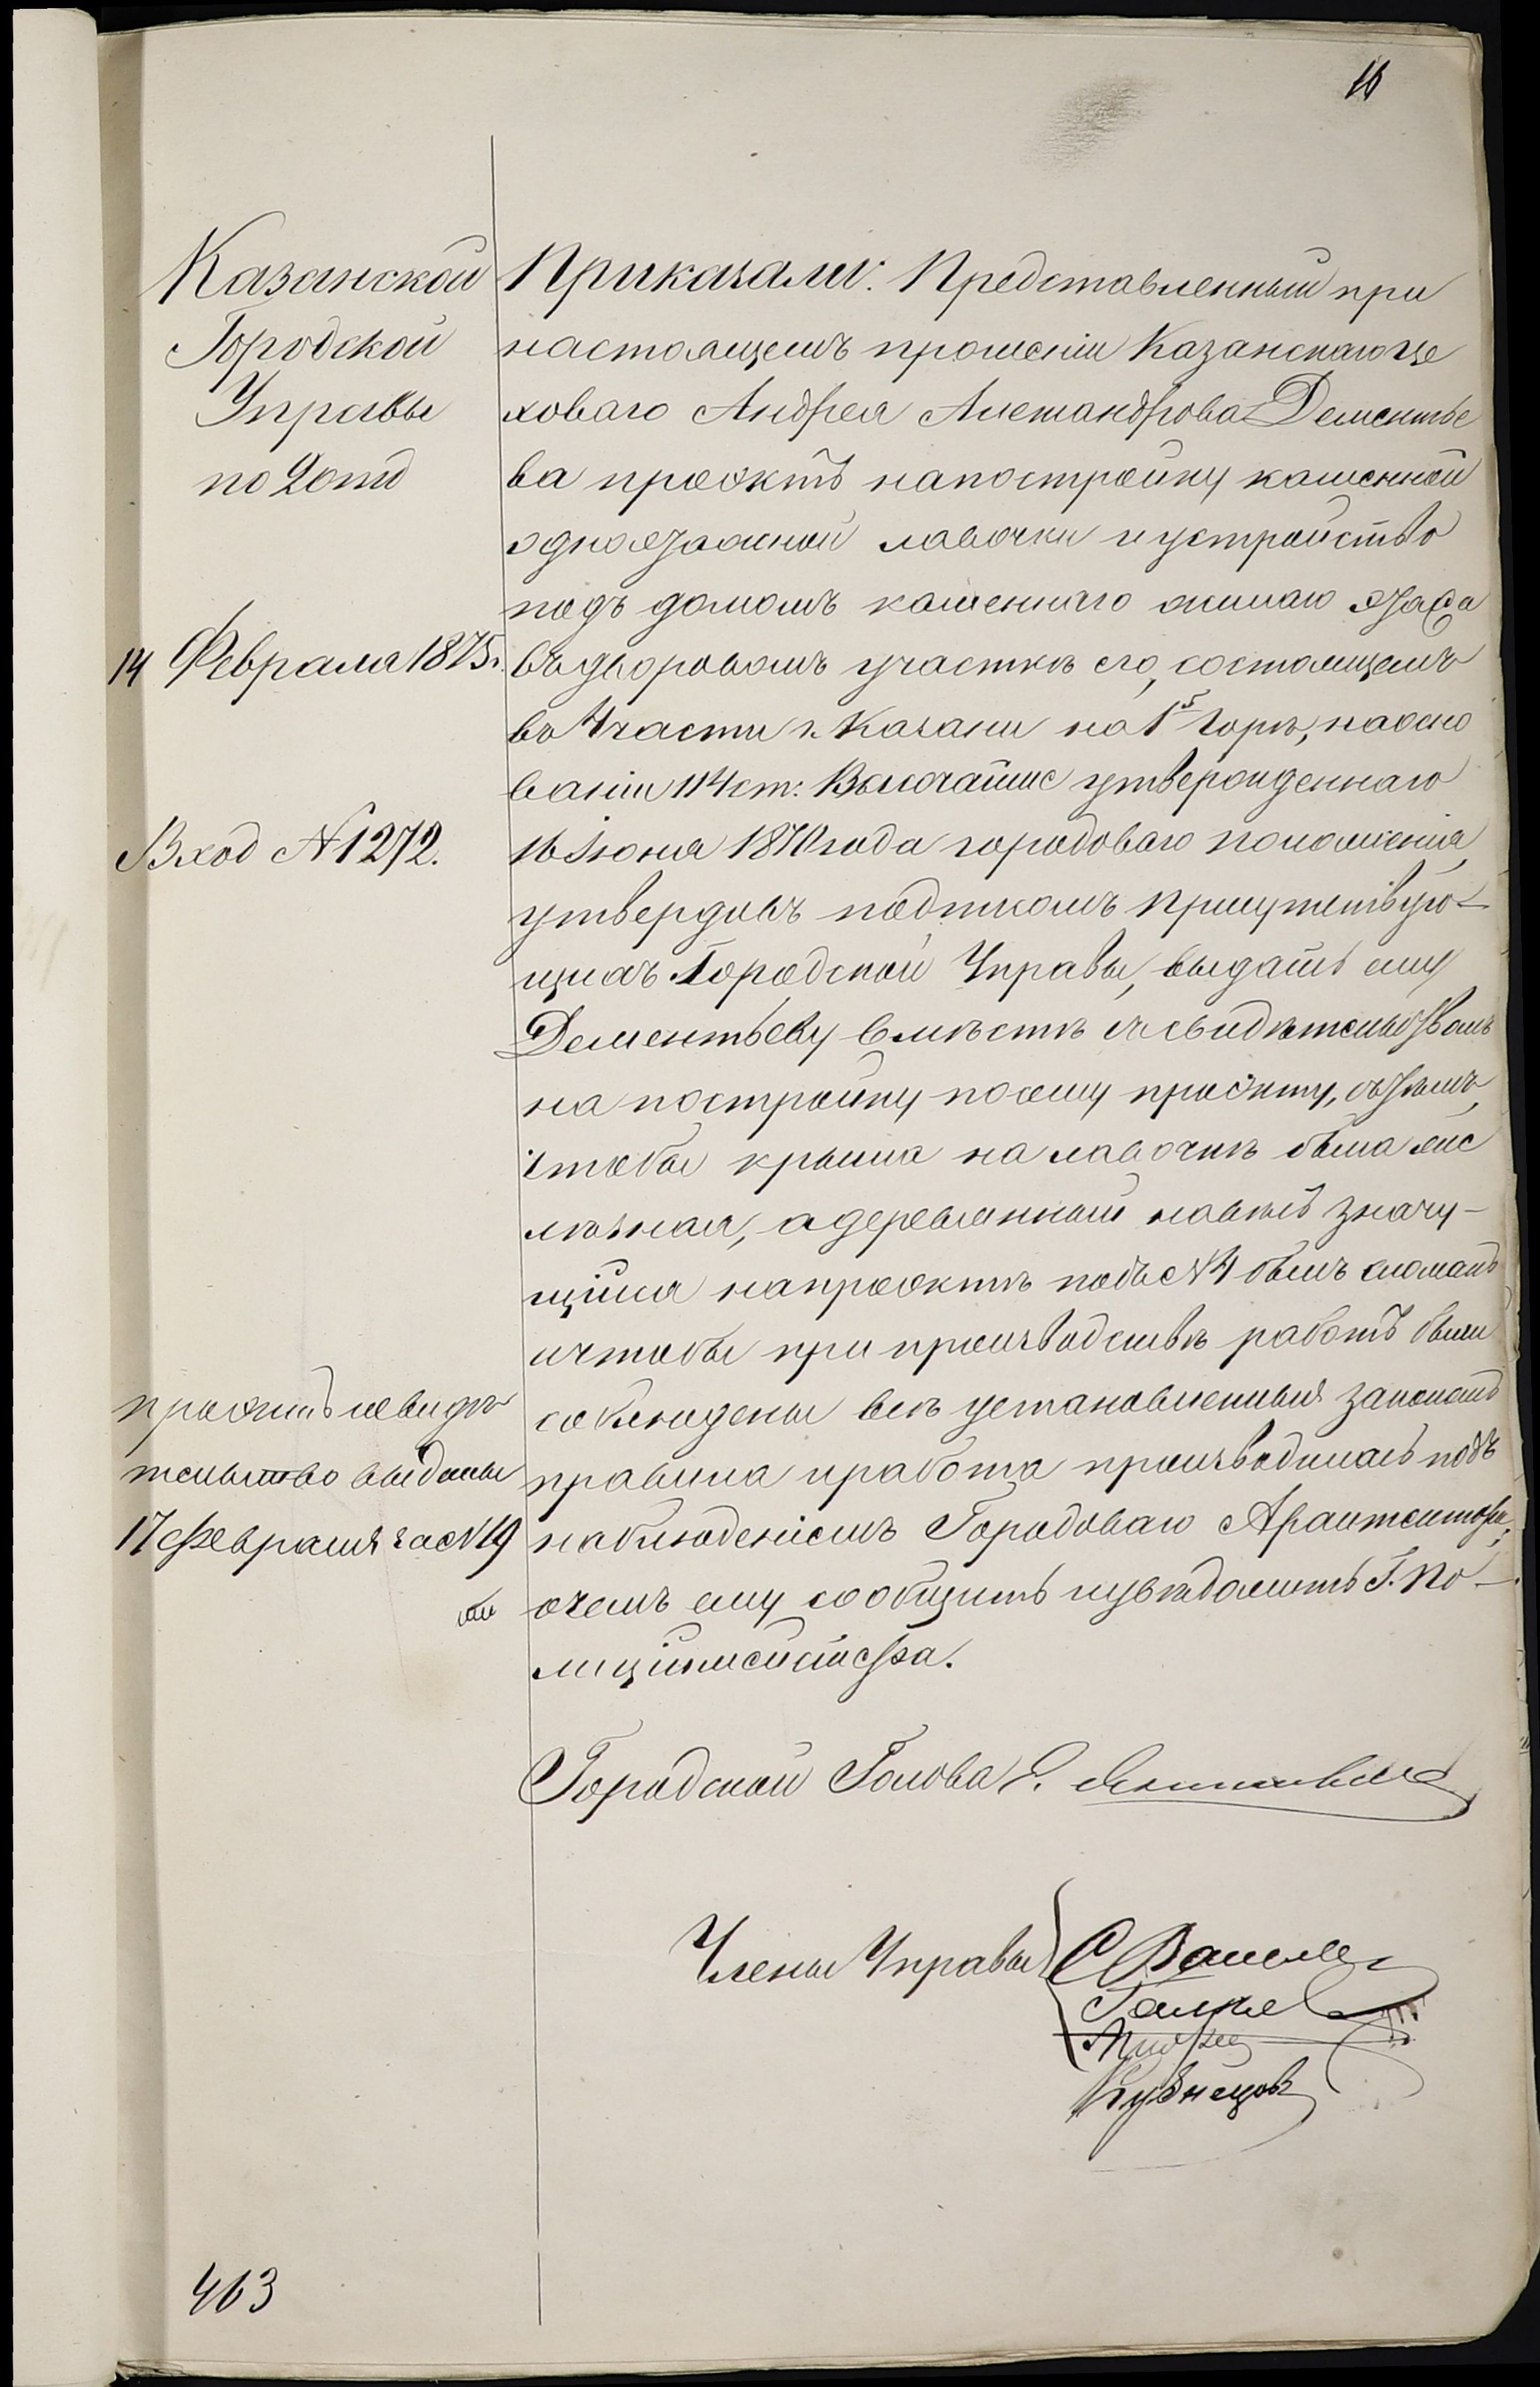 16
Казанской
Городской
Управы
по 2 отд
14 Февраля 1875 г.
Вход № 1272.
проэктъ и свидѣ
тельство выданы
17 Февраля за № 19
Приказали: Представленный при
настоящемъ прошеніи Казанскаго це
ховаго Андрея Александрова Дементье
ва проэктъ на постройку каменной
одноэтажной лавочки и устройство
подъ домомъ каменнаго жилаго этажа
въ дворовомъ участкѣ его, состоящемъ
въ 4 части г. Казани на 1й Горѣ, на осно
ваніи 114 ст. Высочайше утвержденнаго
16 Іюня 1870 года городоваго положенія,
утвердивъ подписомъ присутствую-
щихъ Городской Управы, выдать ему
Дементьеву вмѣстѣ съ свидѣтельствомъ
на постройку по сему проэкту, съ тѣмъ,
чтобы крыша на лавочкѣ была же
лѣзная, а деревянный навѣсъ значу-
щійся на проэктѣ подъ № 4 былъ сломанъ
и чтобы при производствѣ работъ были
соблюдены всѣ установленныя закономъ
правила и работа производилась подъ
наблюденіемъ Городоваго Архитектора,
о чемъ ему сообщить и увѣдомить Г. По-
лиціймейстера.
Городской Голова Е.
Члены Управы
Кузнецовъ
463